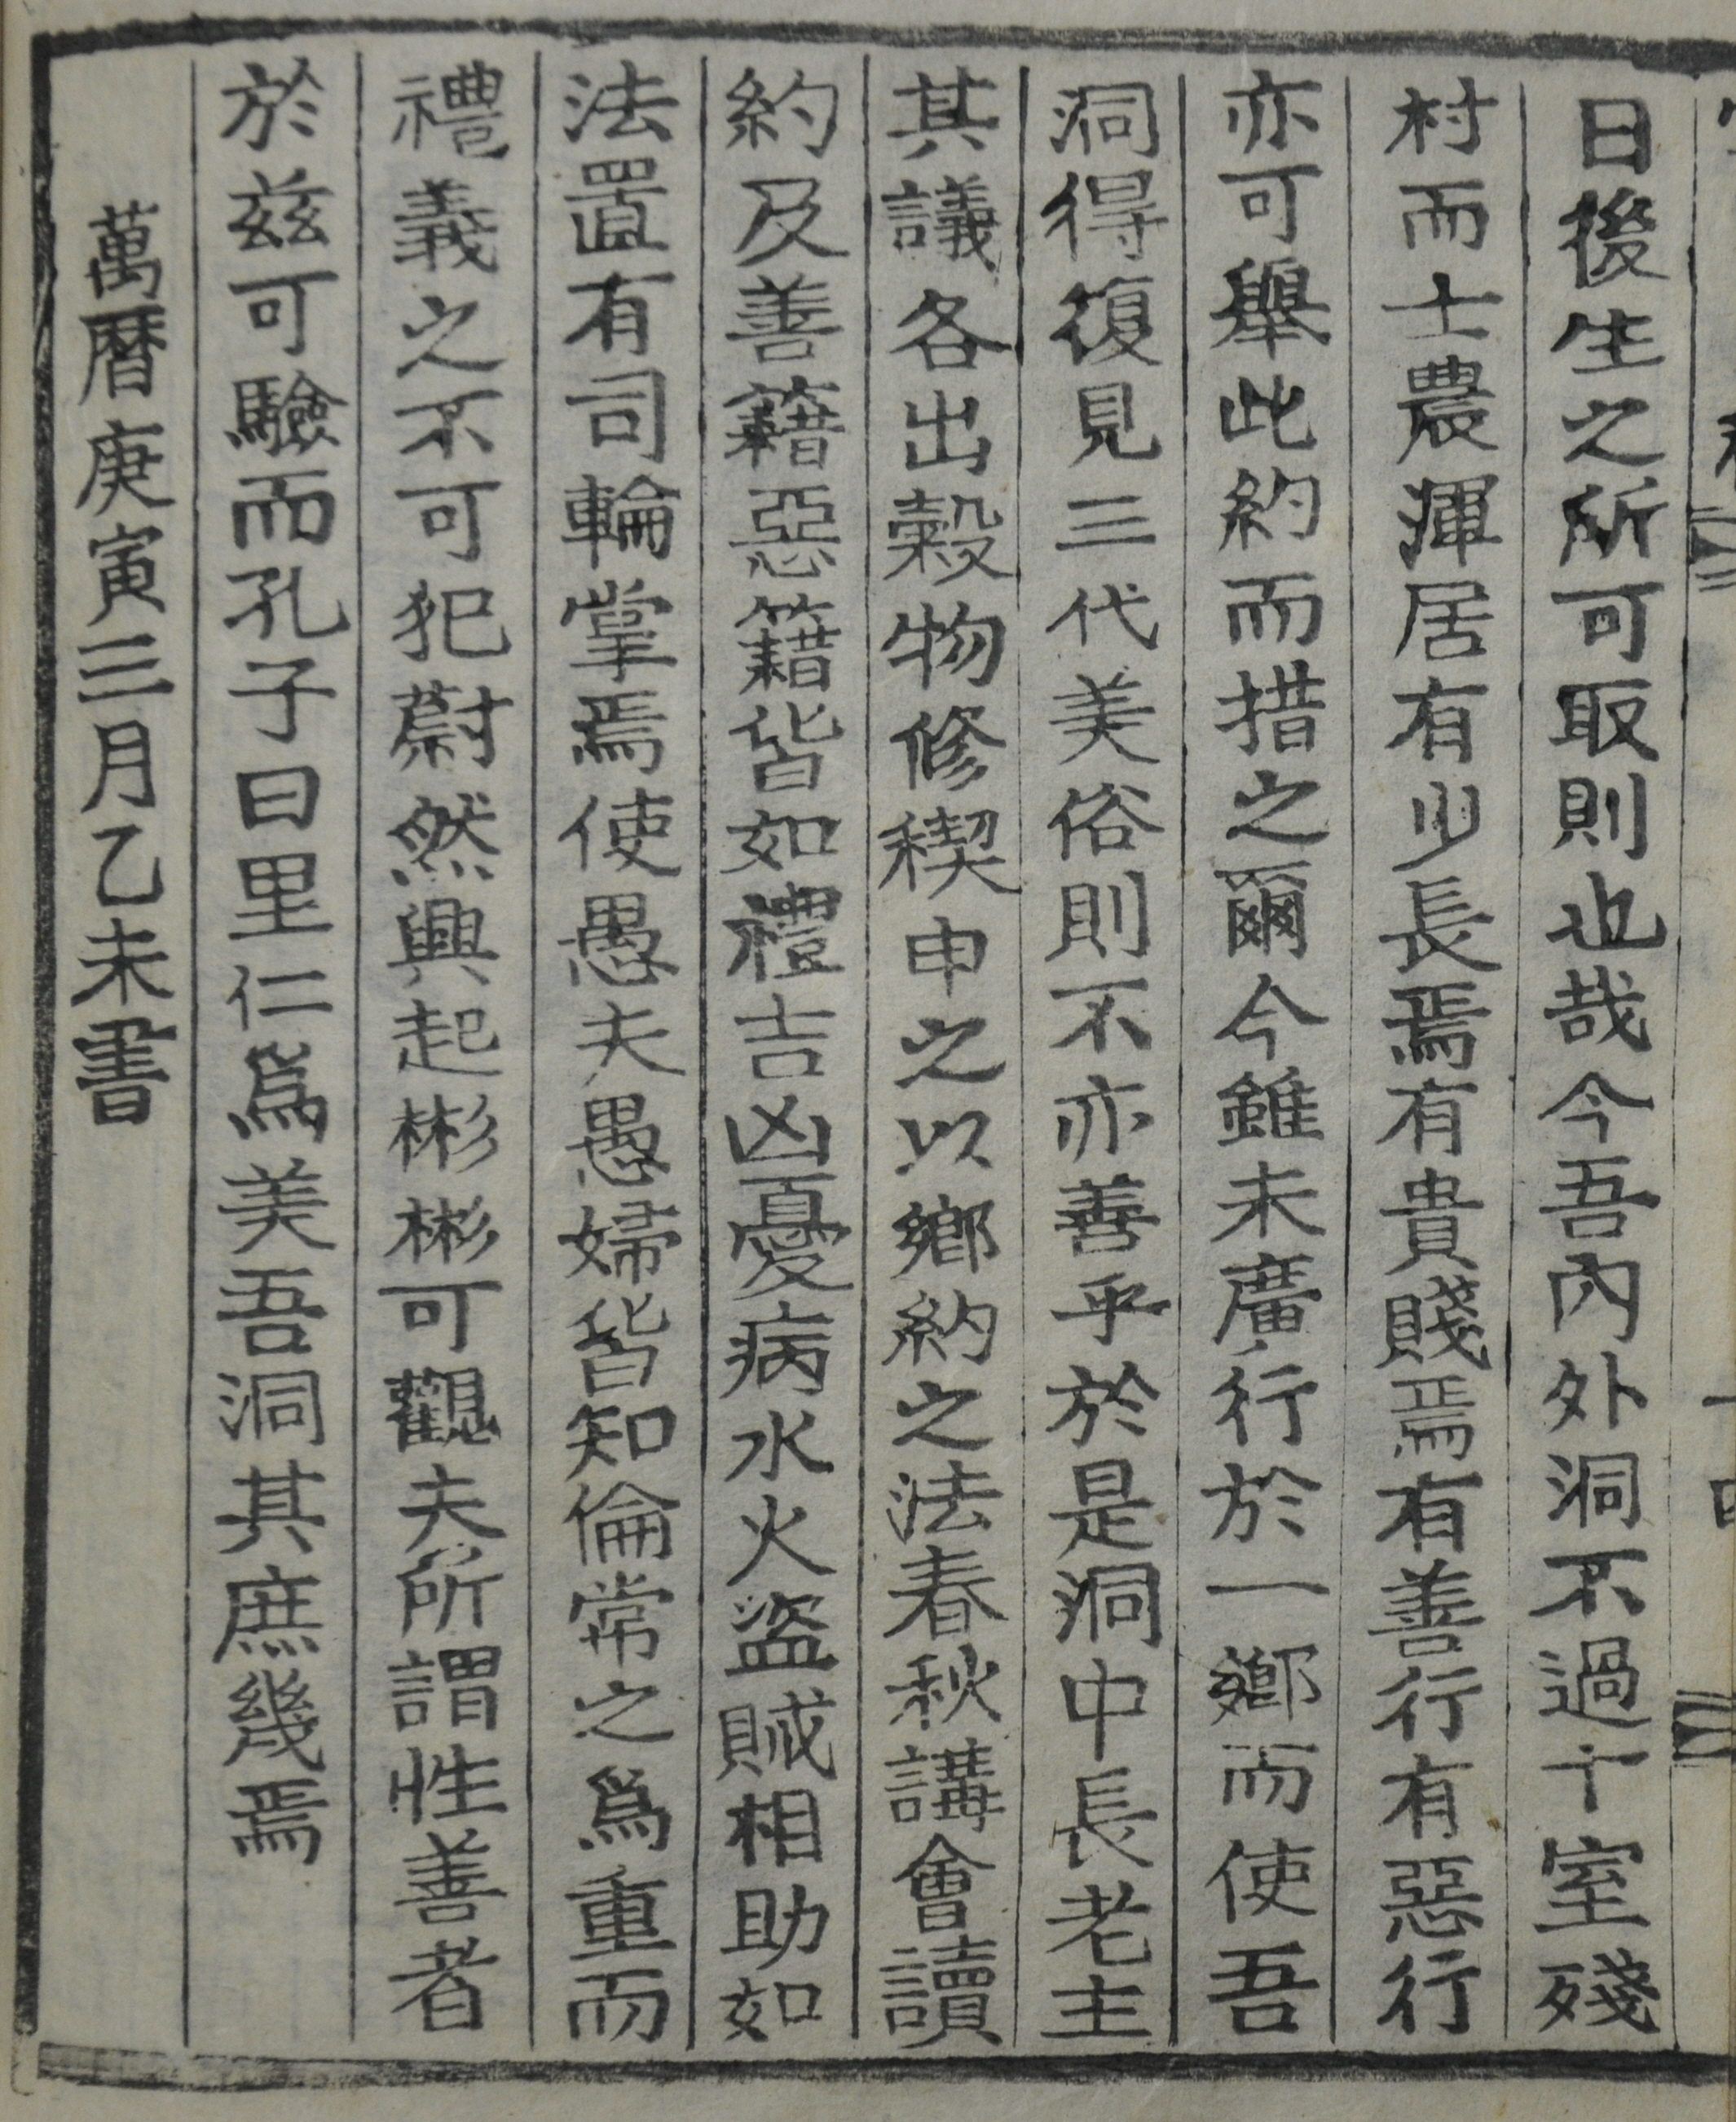 日後生之所可取則也哉今吾內外洞不過十室殘
村而士農渾居有少長焉有貴賤焉有善行有惡行
亦可擧此約而措之爾今雖未廣行於一鄕而使吾
洞得復見三代美俗則不亦善乎於是洞中長老主
其議各出穀物修稧申之以鄕約之法春秋講會讀
約及善籍惡籍皆如禮吉凶憂病水火盜賊相助如
法置有司輪掌焉使愚夫愚婦皆知倫常之爲重而
禮義之不可犯蔚然興起彬彬可觀夫所謂性善者
於玆可驗而孔子曰里仁爲美吾洞其庶幾焉
萬曆庚寅三月乙未書